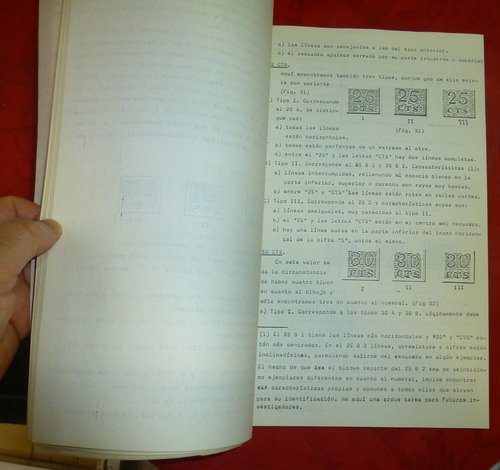 a) las líneas son semejantes a las del tipo anterior.
b) el recuadro aparece marcado por su parte izquierda y superior
CTS.
Aquí encontramos también tres tipos, aunque uno de ello exis-
te con variante
(Fig. 31)
Tipo I. Corresponde
al 25 A. Se distin-
gue por:
a) todas las líneas
están horizontales.
25 CTS
25 CTS
25 CTS
I II III
(Fig. 31)
b) todas están perfectas de un extremo al otro.
c) entre el "25" y las letras "CTS" hay dos líneas completas.
Tipo II. Corresponde al 25 B 1 y 25 B 2. Características (1):
a) líneas interrumpidas, rellenando el espacio blanco en la
parte inferior, superior o derecha con rayas muy bastas.
b) entre "25" y "CTS" las líneas están rotas en varias partes.
Tipo III. Corresponde al 25 C y características suyas son:
a) líneas desiguales, muy parecidas al tipo II.
b) el "25" y las letras "CTS" están en el centro del recuadro.
c) hay una línea curva en la parte inferior del trazo horizon-
tal de la cifra "5", unida al mismo.
30 CTS.
En este valor se
da la circunstancia
de haber cuatro tipos
en cuanto al dibujo y
30 CTS
30 CTS
30 CTS
I II III
sólo encontramos tres en cuanto al numeral. (Fig 32)
A) Tipo I. Corresponde a los tipos 30 A y 30 B. Lógicamente debe
(1) El 25 B 1 tiene las líneas más horizontales y "25" y "CTS" es-
tán más centrados. En el 25 B 2 líneas, abreviatura y cifras están
inclinadísimas, pareciendo salirse del recuadro en algún ejemplar.
El hecho de que el bloque reporte del 25 B 2 sea de veinticin-
co ejemplares diferentes en cuanto al numeral, impide encontrar
características propias y comunes a todos ellos que sirvan
para su identificación. He aquí una ardua tarea para futuros in-
vestigadores.